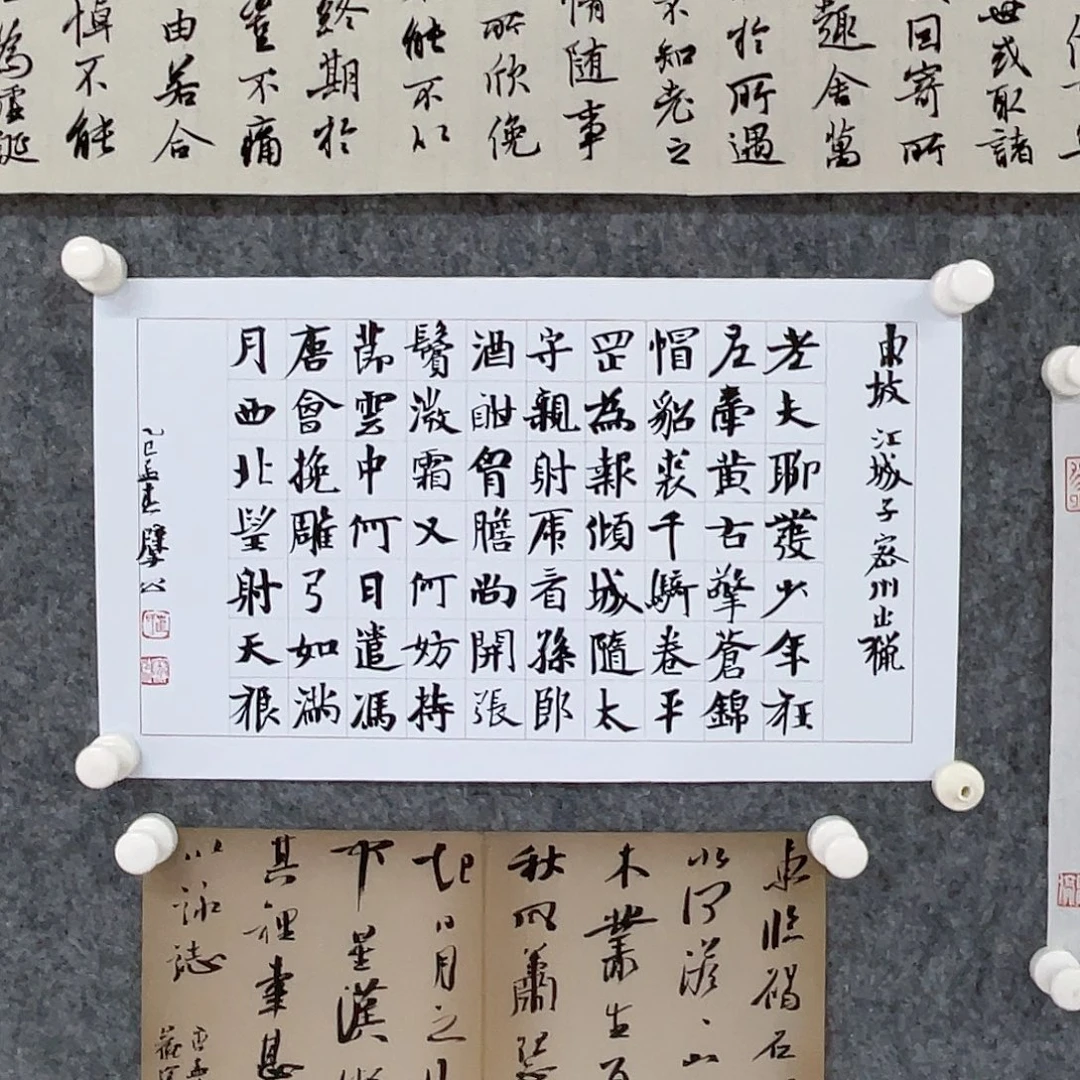 世或取諸
因寄所
趣舍萬
於所遇
不知老之
情随事
所欣俛
能不以
終期於
豈不痛
由若合
悼不能
為虛誕
東坡 江城子 密州出猟
老夫聊發少年狂
左牽黄右擎蒼錦
帽貂裘千騎卷平
罡為報傾城隨太
守親射虎看孫郎
酒酣胷膽尚開張
鬢微霜又何妨持
節雲中何日遣馮
唐會挽雕弓如満
月西北望射天狼
乙巳孟春
東臨碣石
以觀滄山
木叢生百
秋風蕭瑟
起日月之
中星漢
其裡幸甚
以詠誌